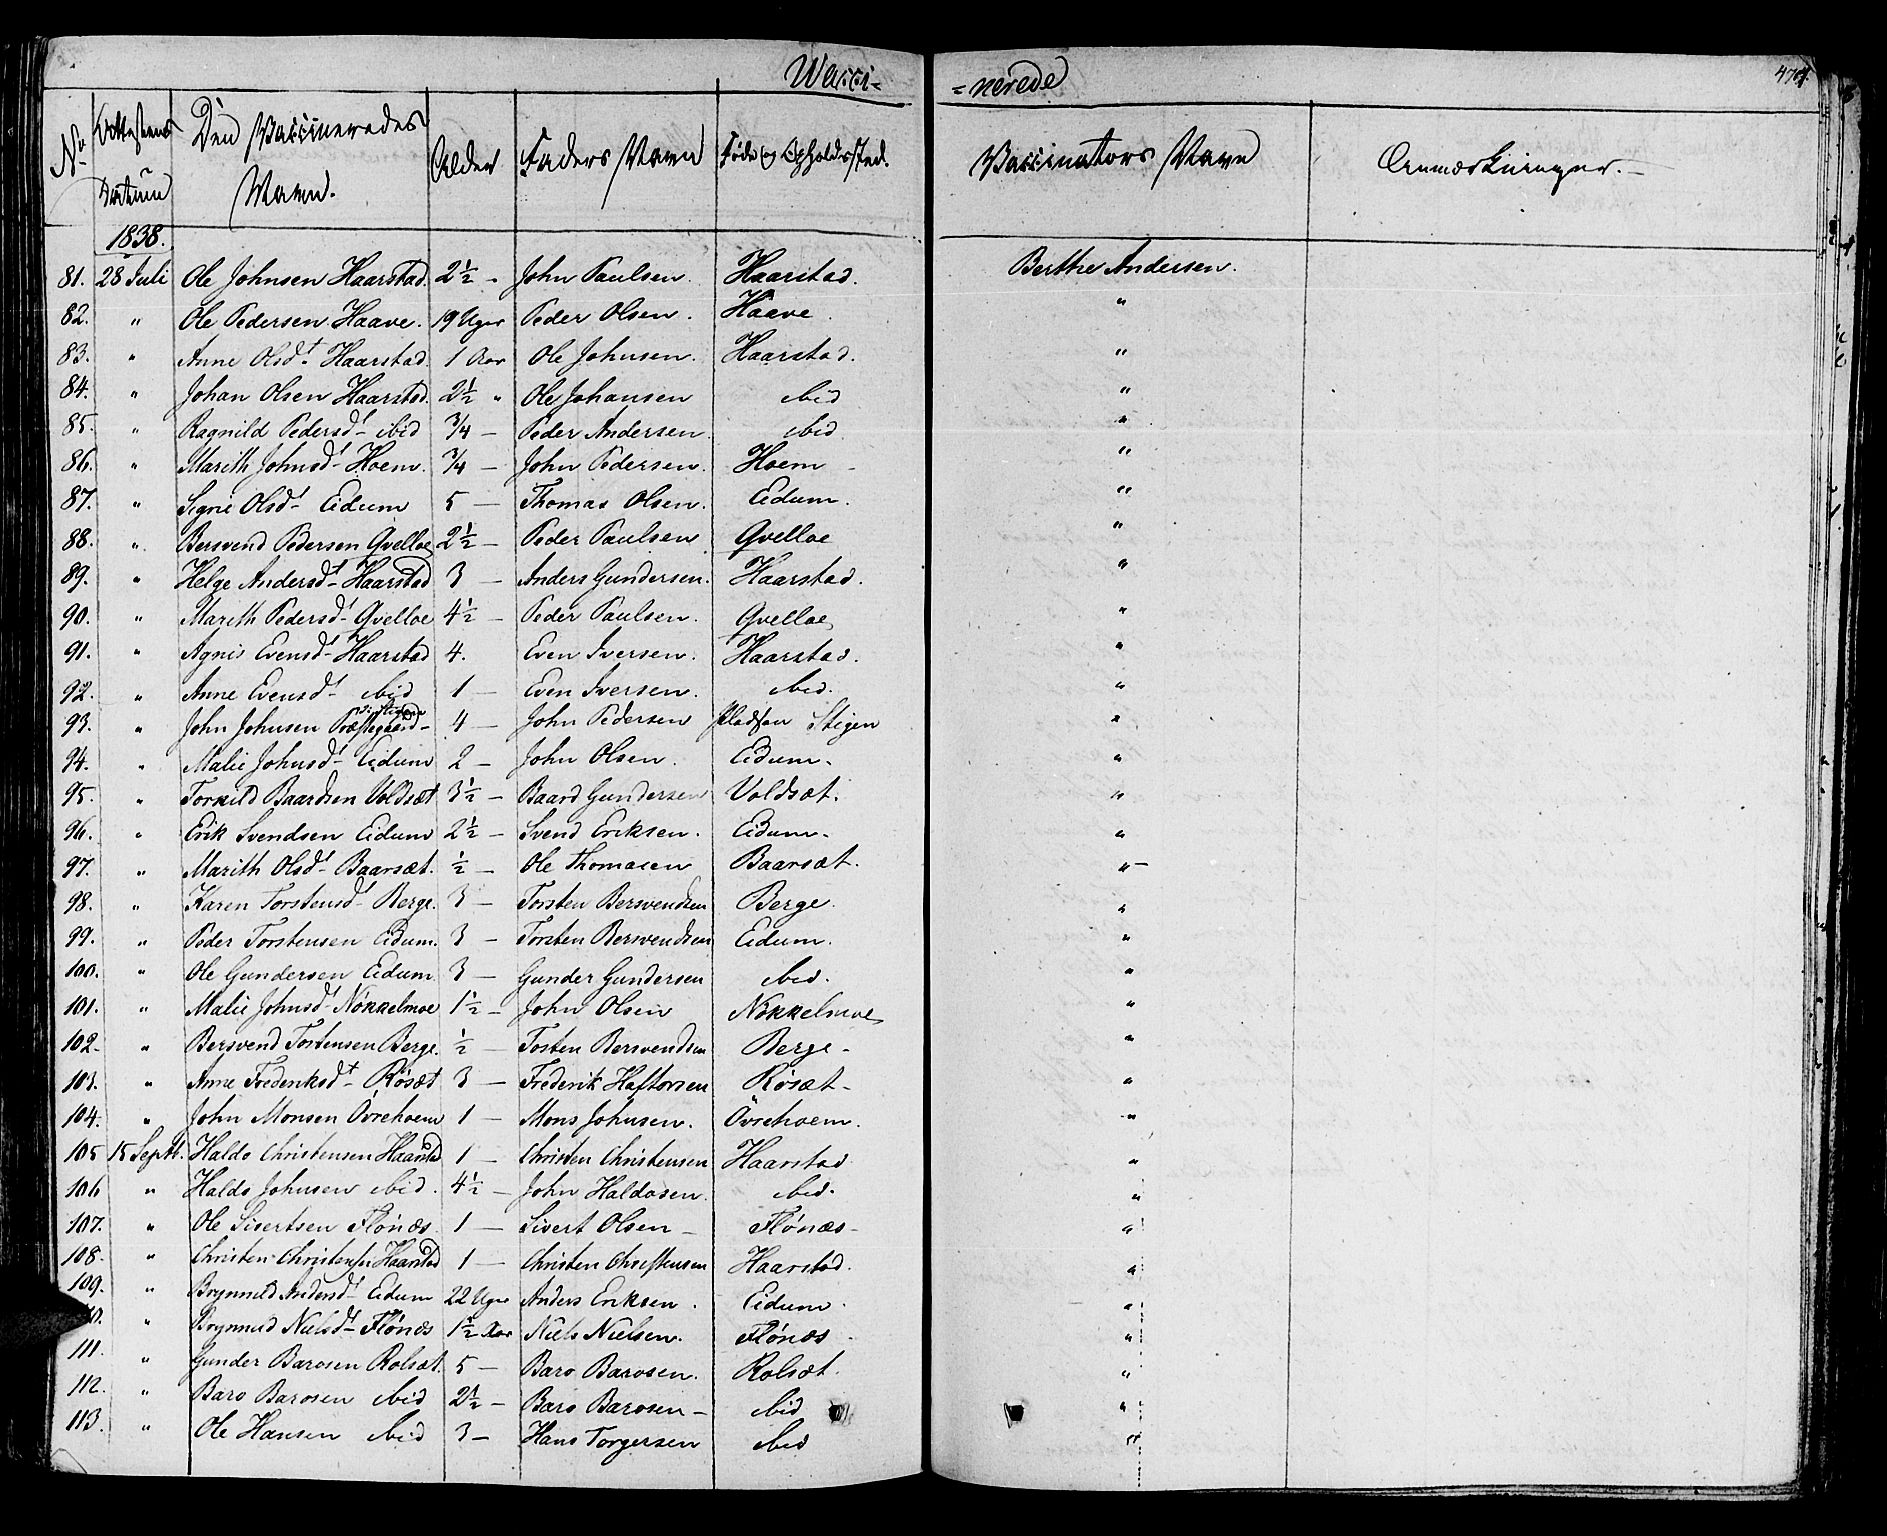 Wacci- -nerede 474.
No Attestens Datum Den Vaccineredes Navn. Alder Faders Navn Føde og Opholdssted. Vaccinators Navn Anmærkninger.-
1838.
81. 28 Juli Ole Johnsen Haarstad. 2½ " John Paulsen. Haarstad. Berthe Andersen.
82. " Ole Pedersen Haave. 19 Uger Peder Olsen. Haave. "
83. " Anne Olsdt Haarstad. 1 Aar Ole Johnsen. Haarstad. "
84. " Johan Olsen Haarstad. 2½ " Ole Johansen ibid "
85. " Ragnild Pedersdt ibid ¾ - Peder Andersen. ibid. "
86. " Marith Johnsdt Hoem. ¾ - John Pedersen. Hoem - "
87. " Signe Olsdt Eidum 5 - Thomas Olsen. Eidum. "
88. " Bersvend Pedersen Qvelloe 2½ - Peder Paulsen Qvelloe "
89. " Helge Andersdt Haarstad 3 - Anders Gundersen. Haarstad. "
90. " Marith Pedersdt Qvelloe 4½ - Peder Paulsen. Qvelloe "
91. " Agnis Evensdt Haarstad 4. Even Iversen. Haarstad. "
92. " Anne Evensdt ibid 1 - Even Iversen. ibid. "
93. " John Johnsen Præstegaard- 4 - John Pedersen Pladsen Stigen "
94. " Malie Johnsdt Eidum 2 - John Olsen. Eidum. "
95. " Torkild Baardsen Voldsæt 3½ - Baard Gundersen Voldsæt. "
96. " Erik Svendsen Eidum 2½ - Svend Eriksen. Eidum. "
97. " Marith Olsdt Baarsæt. ½ - Ole Thomasen Baarsæt. "-
98. " Karen Torstensdt Berge. 3 - Torsten Bersvendsen Berge. "
99. " Peder Torstensen Eidum. 3 - Torsten Bersvendsen Eidum. "
100. " Ole Gundersen Eidum 3 - Gunder Gundersen ibid. "
101. " Malie Johnsdt Nøkkelmoe 1½ - John Olsen Nøkkelmoe "
102. " Bersvend Tostensen Berge. ½ - Tosten Bersvendsen Berge - "
103. " Anne Frederiksdt Røsæt 3 - Frederik Haftorsen Røsæt - "
104. " John Monsen Övrehoem 1 - Mons Johnsen. Övrehoem. "
105 15 Septb. Haldo Christensen Haarstad 1 - Christen Christensen Haarstad "
106 " Haldo Johnsen ibid. 4½ - John Haldosen. ibid. "
107. " Ole Sivertsen Flønæs. 1 - Sivert Olsen - Flønæs - "
108. " Christen Christensen Haarstad 1 - Christen Christensen Haarstad. "
109. " Brynnild Andersdt Eidum 22 Uger Anders Eriksen. Eidum. "
" Brynnild Nielsdt Flønæs 1½ Aar Niels Nielsen. Flønæs - "
111. " Gunder Barosen Rolsæt. 5 - Baro Barosen. Rolsæt. "
112. " Baro Barosen ibid 2½ - Baro Barosen - ibid "
113. " Ole Hansen ibid 3 - Hans Torgersen ibid "